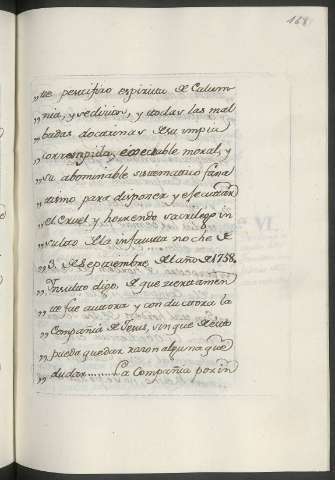 168
„te pestifero espiritu de Calum
„nia, y sedicion, y todas las mal
„badas doctrinas de su impia
„corrompida, execrable moral, y
„su abominable sistematico fana
„tismo, para disponer y ejecutar
„el cruel y horrendo sacrilego in
„sulto de la infausta noche de
„3. de Septiembre del año de 1758.
„Insulto digo, de que ciertamen
„te fue autora y conductora la
„Compañia de Jesus, sin que de esto
„pueda quedar razon alguna que
„dudar........La Compañia por in